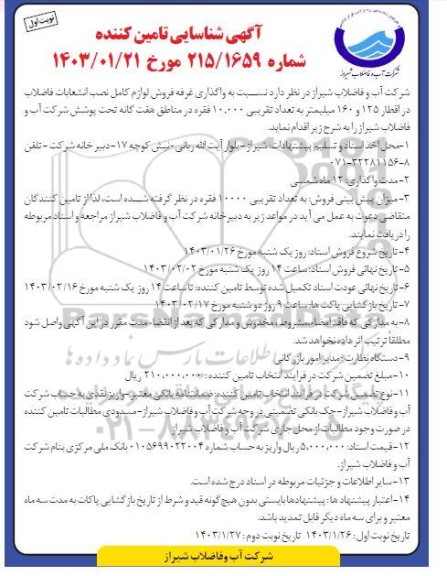 نوبت اول
آگهی شناسایی تامین کننده
شماره ۲۱۵/۱۶۵۹ مورخ ۱۴۰۳/۰۱/۲۱
شرکت آب و فاضلاب شیراز
شرکت آب و فاضلاب شیراز در نظر دارد نسبت به واگذاری غرفه فروش لوازم کامل نصب انشعابات فاضلاب
در اقطار ۱۲۵ و ۱۶۰ میلیمتر به تعداد تقریبی ۱۰.۰۰۰ فقره در مناطق هفت گانه تحت پوشش شرکت آب و
فاضلاب شیراز را به شرح زیر اقدام نماید.
۱-محل اخذ اسناد و تسلیم پیشنهادات: شیراز-بلوار آیت الله ربانی -نبش کوچه ۱۷-دبیر خانه شرکت - تلفن
۰۷۱-۳۲۲۸۱۱۵۶-۸
۲-مدت واگذاری: ۱۲ ماه شمسی
۳-میزان پیش بینی فروش: به تعداد تقریبی ۱۰۰۰۰ فقره در نظر گرفته شده است، لذا از تامین کنندگان
متقاضی دعوت به عمل می آید در مواعد زیر به دبیر خانه شرکت آب و فاضلاب شیراز مراجعه و اسناد مربوطه
را دریافت نمایند.
۴-تاریخ شروع فروش اسناد: روز یک شنبه مورخ ۱۴۰۳/۰۱/۲۶
۵-تاریخ نهائی فروش اسناد: ساعت ۱۴ روز یک شنبه مورخ ۱۴۰۳/۰۲/۰۲
۶-تاریخ نهائی عودت اسناد تکمیل شده توسط تامین کننده: تا ساعت ۱۴ روز یک شنبه مورخ ۱۴۰۳/۰۲/۱۶
۷-تاریخ بازگشایی پاکت ها: ساعت ۹ روز دو شنبه مورخ ۱۴۰۳/۰۲/۱۷
۸-به مدارکی که فاقد امضا، مشروط، مخدوش و مدارکی که بعد از انقضاء مدت مقرر در این آگهی واصل شود
مطلقاً ترتیب اثر داده نخواهد شد.
۹-دستگاه نظارت: مدیر امور بازرگانی
۱۰-مبلغ تضمین شرکت در فرایند انتخاب تامین کننده: ۲۱۰.۰۰۰.۰۰۰ ریال
۱۱-نوع تضمین شرکت در فرایند انتخاب تامین کننده: ضمانتنامه بانکی معتبر-واریز نقدی به حساب شرکت
آب و فاضلاب شیراز-چک بانکی تضمینی در وجه شرکت آب و فاضلاب شیراز-مسدودی مطالبات تامین کننده
در صورت وجود مطالبات از محل جاری شرکت آب و فاضلاب شیراز
۱۲-قیمت اسناد: ۵.۰۰۰.۰۰۰ ریال واریز به حساب شماره ۰۱۰۵۶۹۹۰۲۲۰۰۴ بانک ملی مرکزی بنام شرکت
آب و فاضلاب شیراز.
۱۳-سایر اطلاعات و جزئیات مربوطه در اسناد درج شده است.
۱۴-اعتبار پیشنهاد ها: پیشنهادها بایستی بدون هیچ گونه قید و شرط از تاریخ بازگشایی پاکات به مدت سه ماه
معتبر و برای سه ماه دیگر قابل تمدید باشد.
تاریخ نوبت اول: ۱۴۰۳/۱/۲۶ تاریخ نوبت دوم: ۱۴۰۳/۱/۲۷
شرکت آب و فاضلاب شیراز